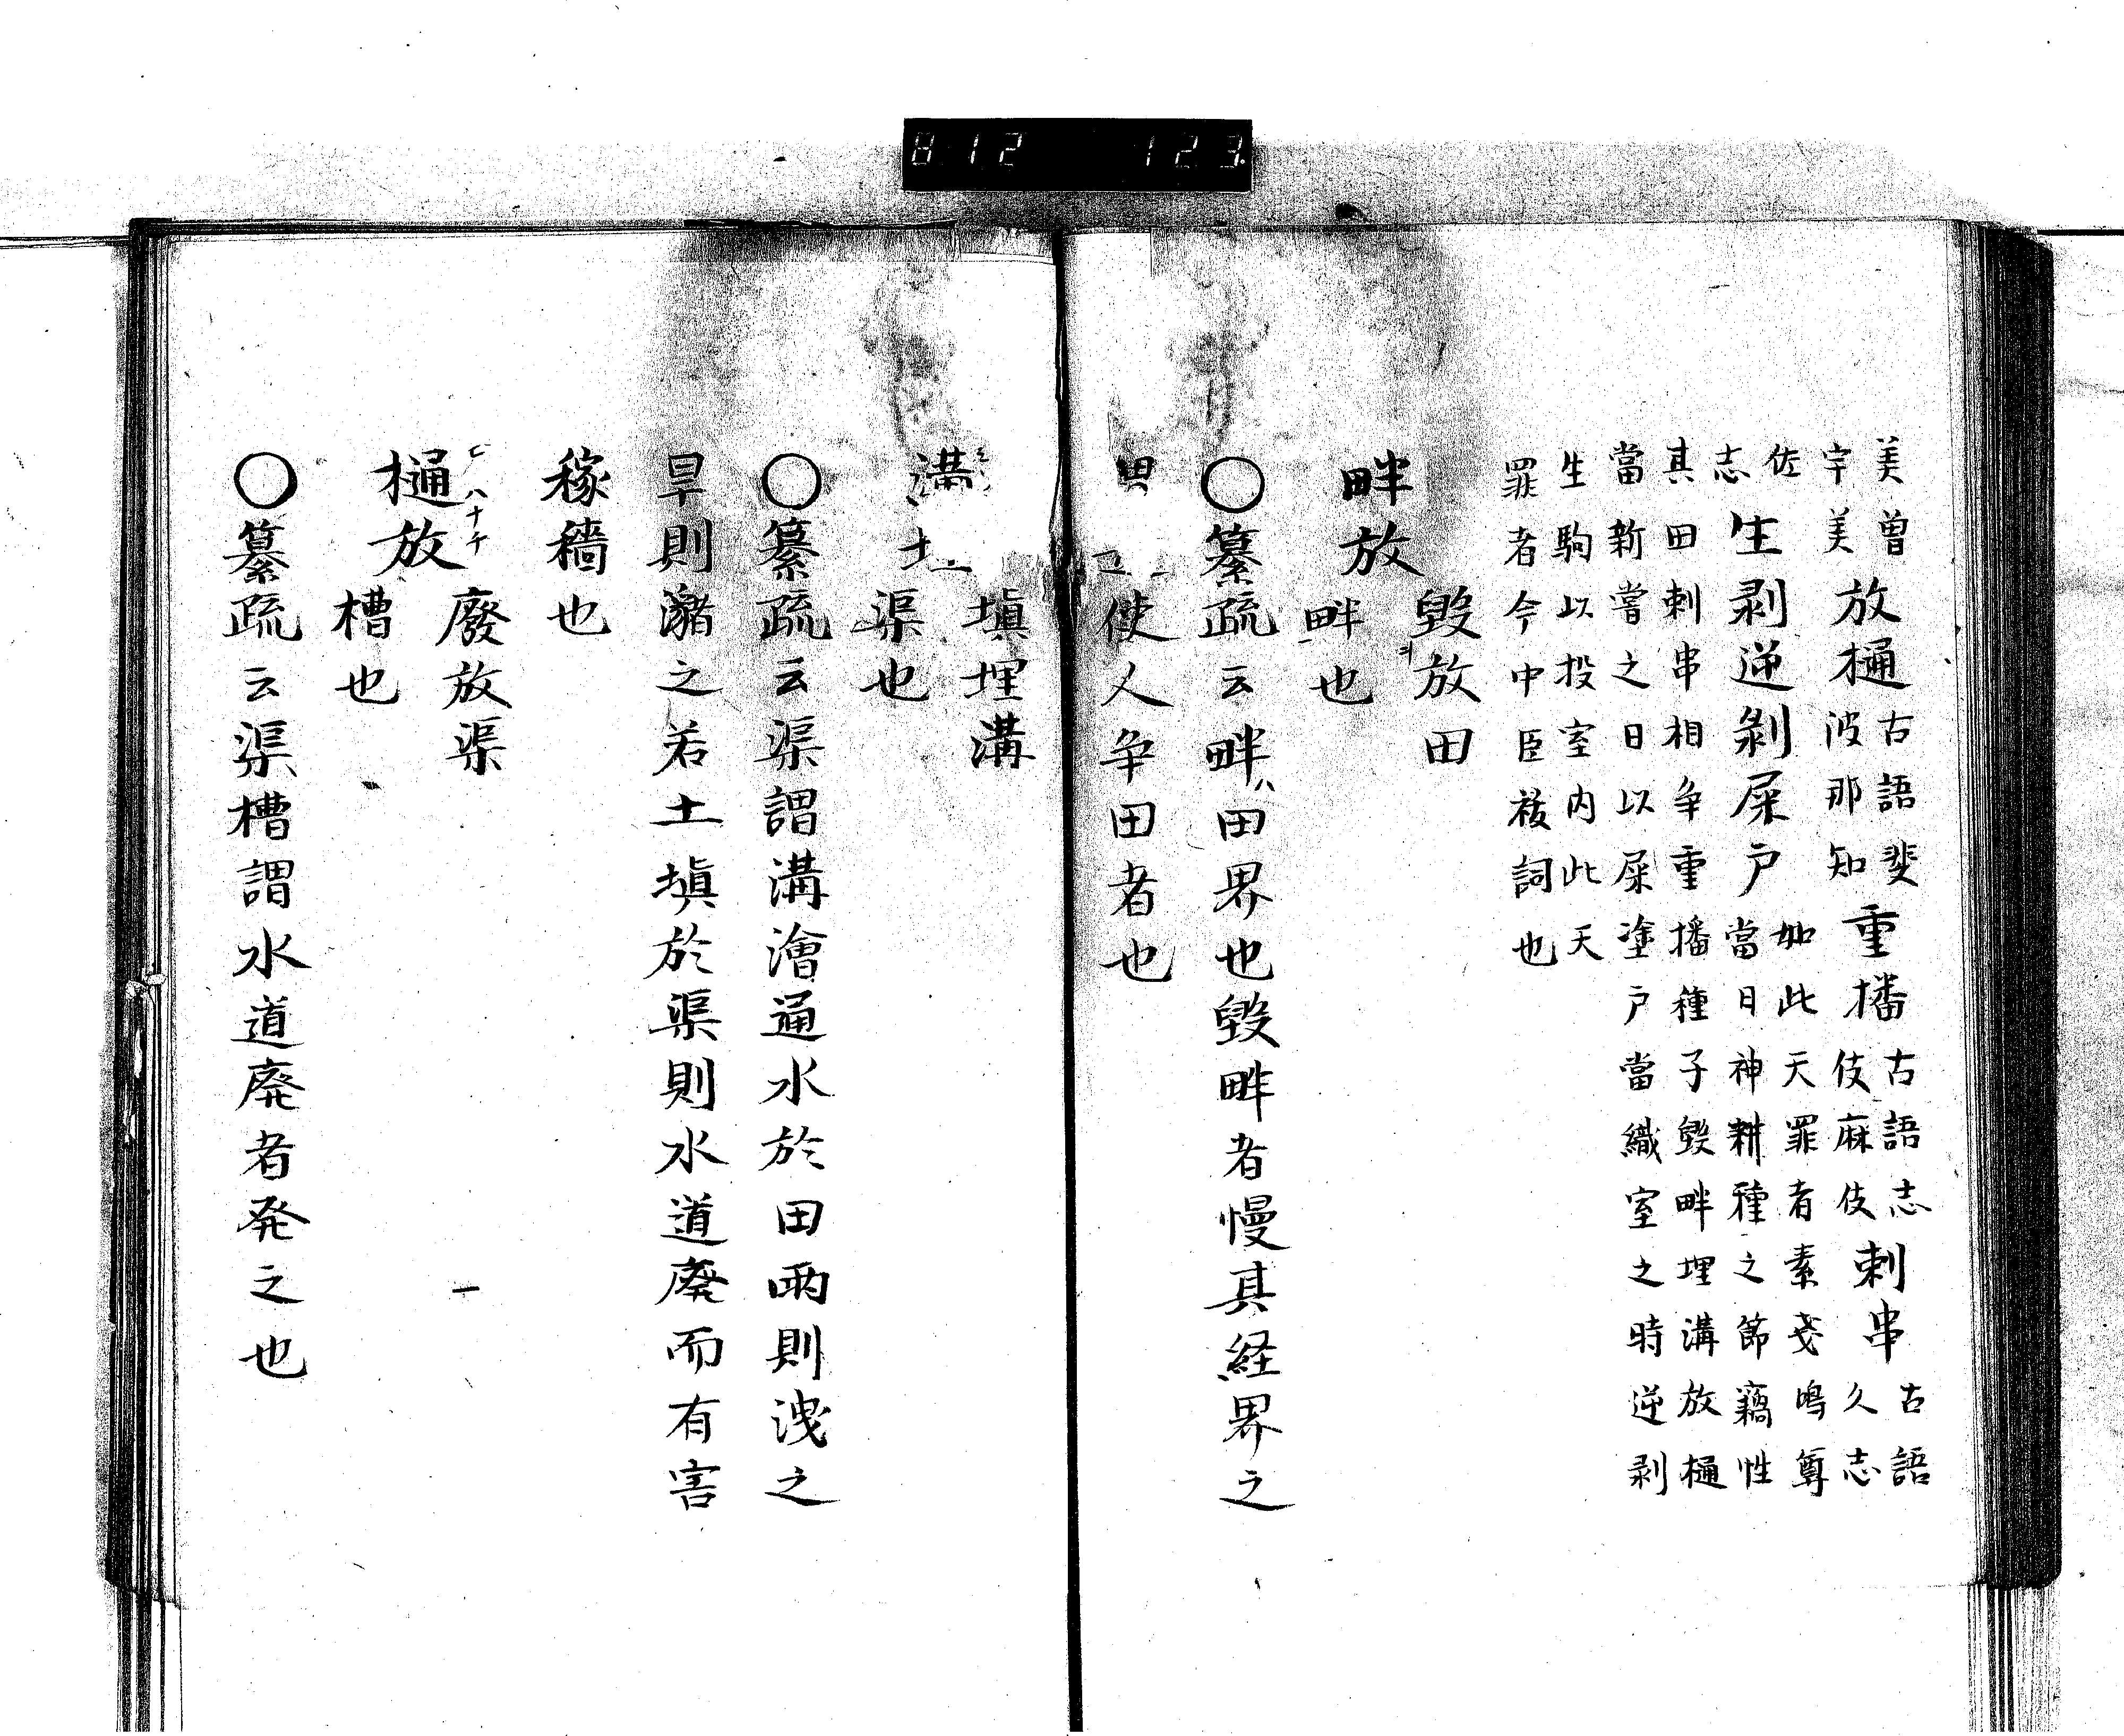 8 12 123
美曽放樋古語斐重播古語志刺串古語
宇美　　波那知　　伎麻伎　　久志
佐生剥逆剝屎戸如此天罪者素戔鳴尊
志　　　　　　當日神耕種之節竊性
其田刺串相争重播種子毀畔埋溝放樋
當新嘗之日以屎塗戸當織室之時逆剥
生駒以投室内此天
罪者今中臣祓詞也
畔放 毀放田
畔也
○纂疏云畔ハ田界也毀畔者慢其経界之
使人争田者也
溝 填埋溝
渠也
○纂疏云渠謂溝澮通水於田雨則洩之
旱則瀦之若土填於渠則水道廃而有害
稼穡也
樋放 廢放渠
槽也
○纂疏云渠槽謂水道廃者発之也